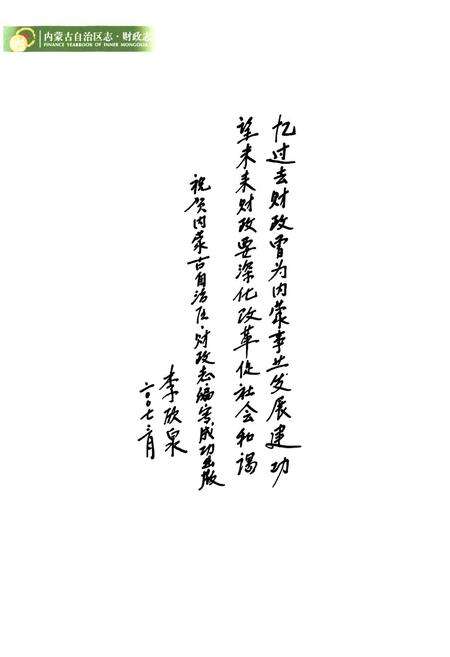 内蒙古自治区志·财政志
FINANCE YEARBOOK OF INNER MONGOLIA
忆过去财政曾为内蒙事业发展建功
望未来财政要深化改革促社会和谐
祝贺内蒙古自治区·财政志编写成功出版
李欣泉
二〇〇七.二月